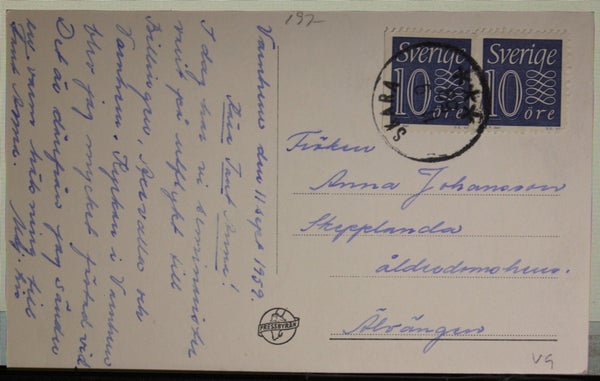 Varnhem den 11 sept 1959.
Kära Tant Anna!
I dag har vi
varit på utflykt till
Billingen, och
Varnhem. Kyrkan i Varnhem
blev jag mycket fästad vid.
Det är därför jag sänder
en varm hälsning till
Tant Anna.
192-
Sverige
10
öre
Sverige
10
öre
SKARA
Fröken
Anna Johansson
Skepplanda
ålderdomshem.
Älvängen
PRESSBYRÅN
VG